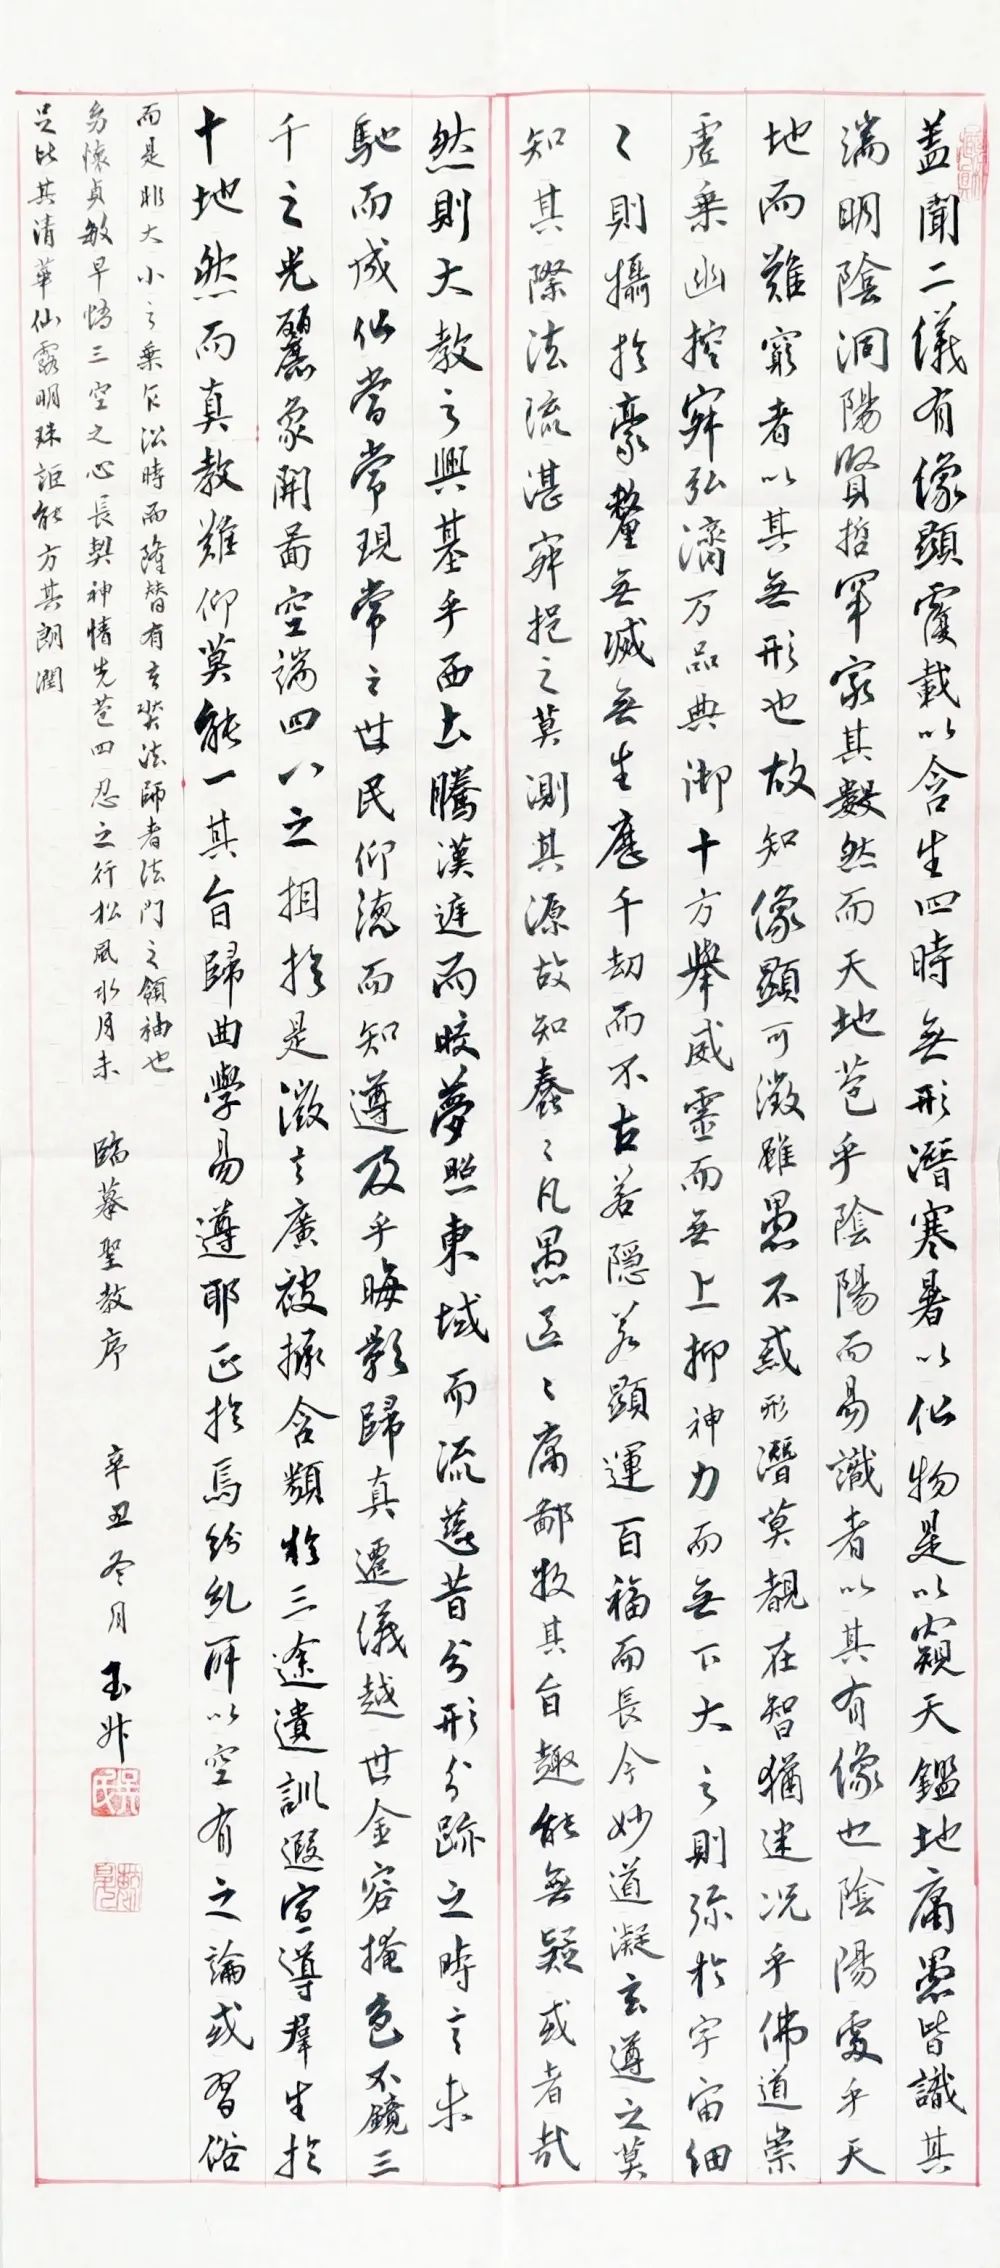 蓋聞二儀有像顯覆載以含生四時無形潛寒暑以化物是以窺天鑑地庸愚皆識其
端明陰洞陽賢哲罕窮其數然而天地苞乎陰陽而易識者以其有像也陰陽處乎天
地而難窮者以其無形也故知像顯可徵雖愚不惑形潛莫覩在智猶迷況乎佛道崇
虛乘幽控寂弘濟万品典御十方舉威靈而無上抑神力而無下大之則彌於宇宙細
々則攝於豪釐無滅無生歷千劫而不古若隱若顯運百福而長今妙道凝玄遵之莫
知其際法流湛寂挹之莫測其源故知蠢々凡愚區々庸鄙投其旨趣能無疑或者哉
然則大教之興基乎西土騰漢庭而皎夢照東域而流慈昔分形分跡之時言未
馳而成化當常現常之世民仰德而知遵及乎晦影歸真遷儀越世金容掩色不鏡三
千之光麗象開圖空端四八之相於是微言廣被拯含類於三途遺訓遐宣導群生於
十地然而真教難仰莫能一其旨歸曲學易遵耶正於焉紛糺所以空有之論或習俗
而是非大小之乘乍沿時而隆替有玄奘法師者法門之領袖也
幼懷貞敏早悟三空之心長契神情先苞四忍之行松風水月未
足比其清華仙露明珠詎能方其朗潤
臨摹聖教序 辛丑冬月 玉